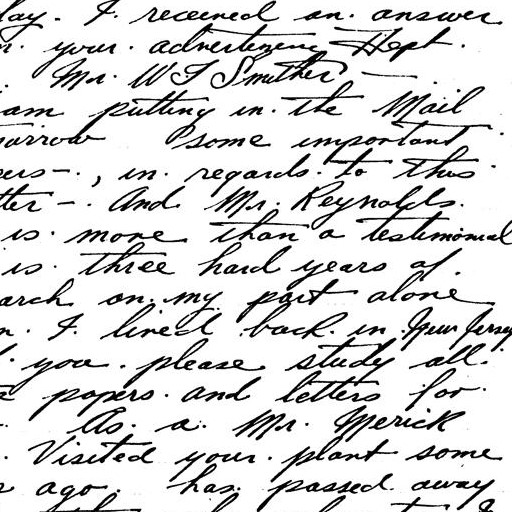 day. I received an. answer
your. advertizeing Dept.
Mr. W F Smither —
am putting in. the Mail
morrow some important
pers-., in. regards. to this
tter -. And Mr. Reynolds.
is. more than a testimonial
is. three hard years of.
earch on. my part alone
n. I. lived back. in. New Jersey
you. please study all.
papers. and letters for.
As. a. Mr. Merick
Visited your. plant some
ago. has. passed. away